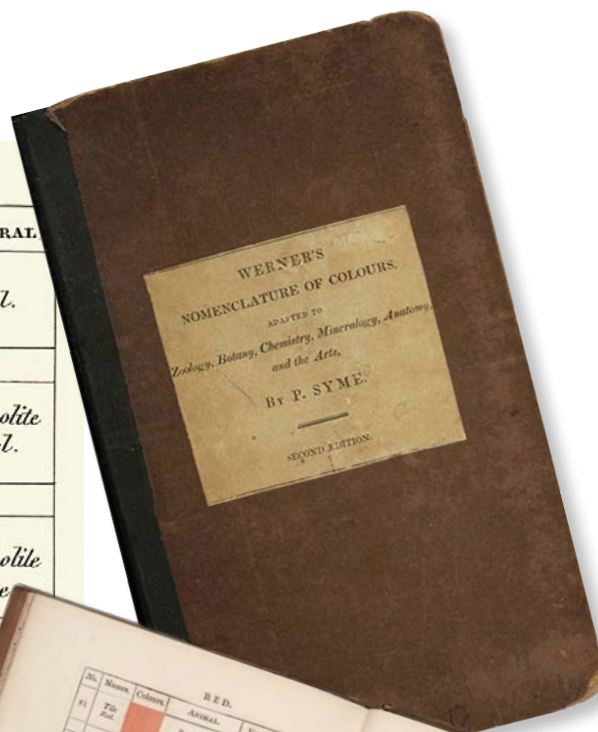 RAL
l.
olite
l.
olite
e
WERNER'S
NOMENCLATURE OF COLOURS,
ADAPTED TO
Zoology, Botany, Chemistry, Mineralogy, Anatomy,
and the Arts,
BY P. SYME.
SECOND EDITION.
RED.
No. Names. Colours. ANIMAL.
Tile
Red.